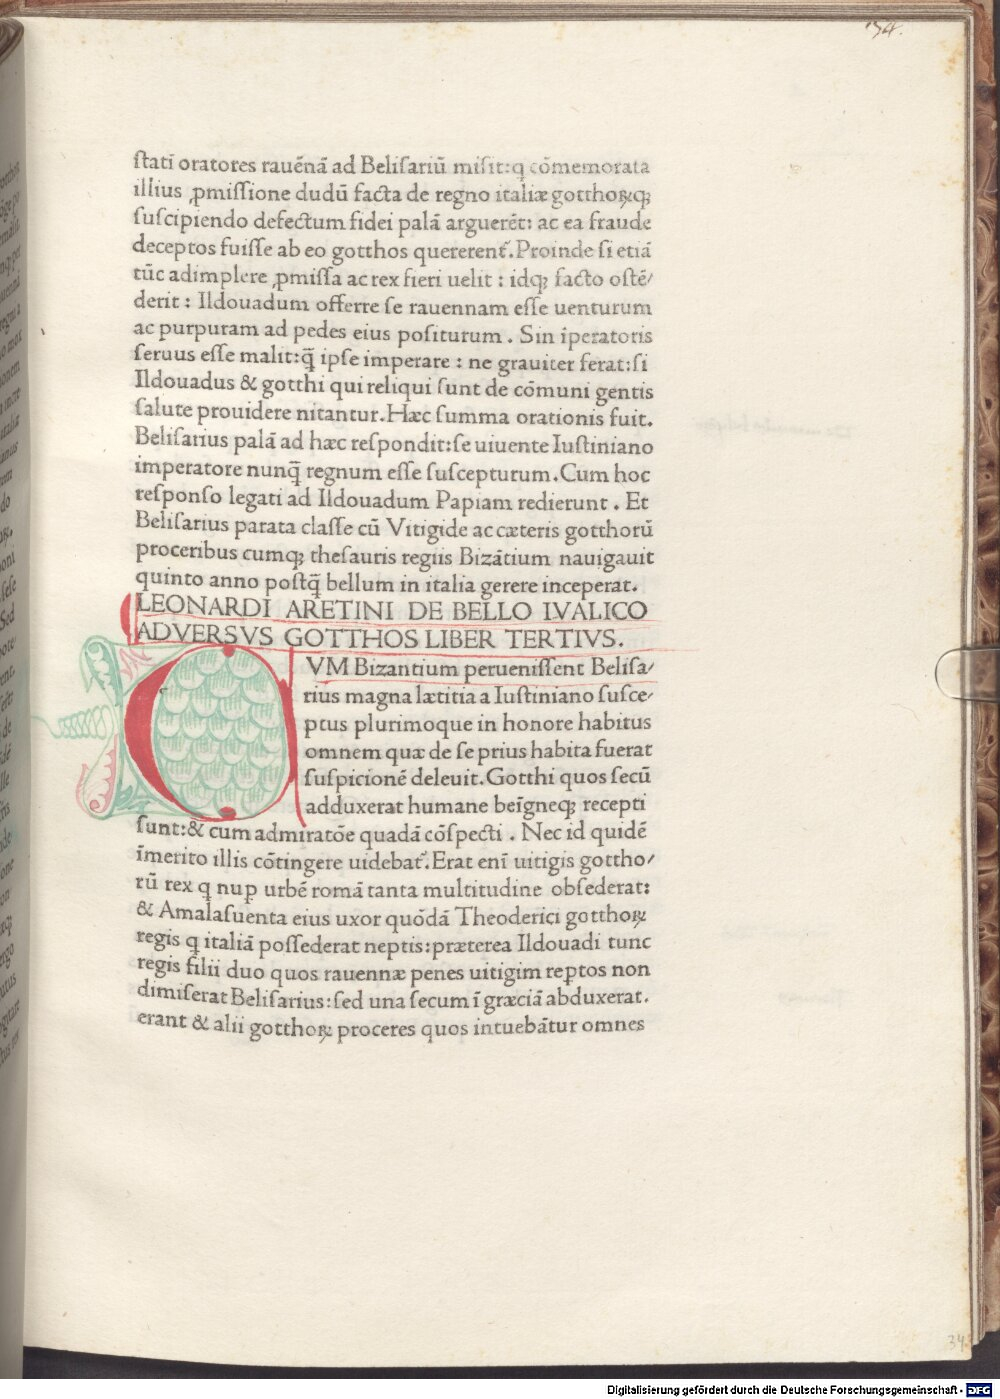 34.
ſtatī oratores rauēnā ad Beliſariū miſit: q cōmemorata
illius ꝓmiſſione dudū facta de regno italiæ gotthoꝝqꝫ
ſuſcipiendo defectum fidei palā arguerēt: ac ea fraude
deceptos fuiſſe ab eo gotthos quererent̄. Proinde ſi etiā
tūc adimplere ꝓmiſſa ac rex fieri uelit : idqꝫ facto oſtē/
derit : Ildouadum offerre ſe rauennam eſſe uenturum
ac purpuram ad pedes eius poſiturum . Sin īperatoris
ſeruus eſſe malit: q̄ ipſe imperare : ne grauiter ferat: ſi
Ildouadus & gotthi qui reliqui ſunt de cōmuni gentis
ſalute prouidere nitantur. Hæc ſumma orationis fuit.
Beliſarius palā ad hæc reſpondit: ſe uiuente Iuſtiniano
imperatore nunq̄ regnum eſſe ſuſcepturum. Cum hoc
reſponſo legati ad Ildouadum Papiam redierunt . Et
Beliſarius parata claſſe cū Vitigide ac cæteris gotthorū
proceribus cumqꝫ theſauris regiis Bizātium nauigauit
quinto anno poſtq̄ bellum in italia gerere inceperat.
LEONARDI ARETINI DE BELLO I.VALICO
ADVERSVS GOTTHOS LIBER TERTIVS.
CVM Bizantium perueniſſent Beliſa/
rius magna lætitia a Iuſtiniano ſuſce/
ptus plurimoque in honore habitus
omnem quæ de ſe prius habita fuerat
ſuſpicionē deleuit. Gotthi quos ſecū
adduxerat humane beīgneqꝫ recepti
ſunt: & cum admiratōe quadā cōſpecti . Nec id quidē
īmerito illis cōtingere uidebat̄. Erat enī uitigis gottho/
rū rex q nup urbē romā tanta multitudine obſederat:
& Amalaſuenta eius uxor quōdā Theoderici gotthoꝝ
regis q italiā poſſederat neptis: præterea Ildouadi tunc
regis filii duo quos rauennæ penes uitigim reꝑtos non
dimiſerat Beliſarius: ſed una ſecum ī græciā abduxerat.
erant & alii gotthoꝝ proceres quos intuebātur omnes
34
Digitalisierung gefördert durch die Deutsche Forschungsgemeinschaft - DFG